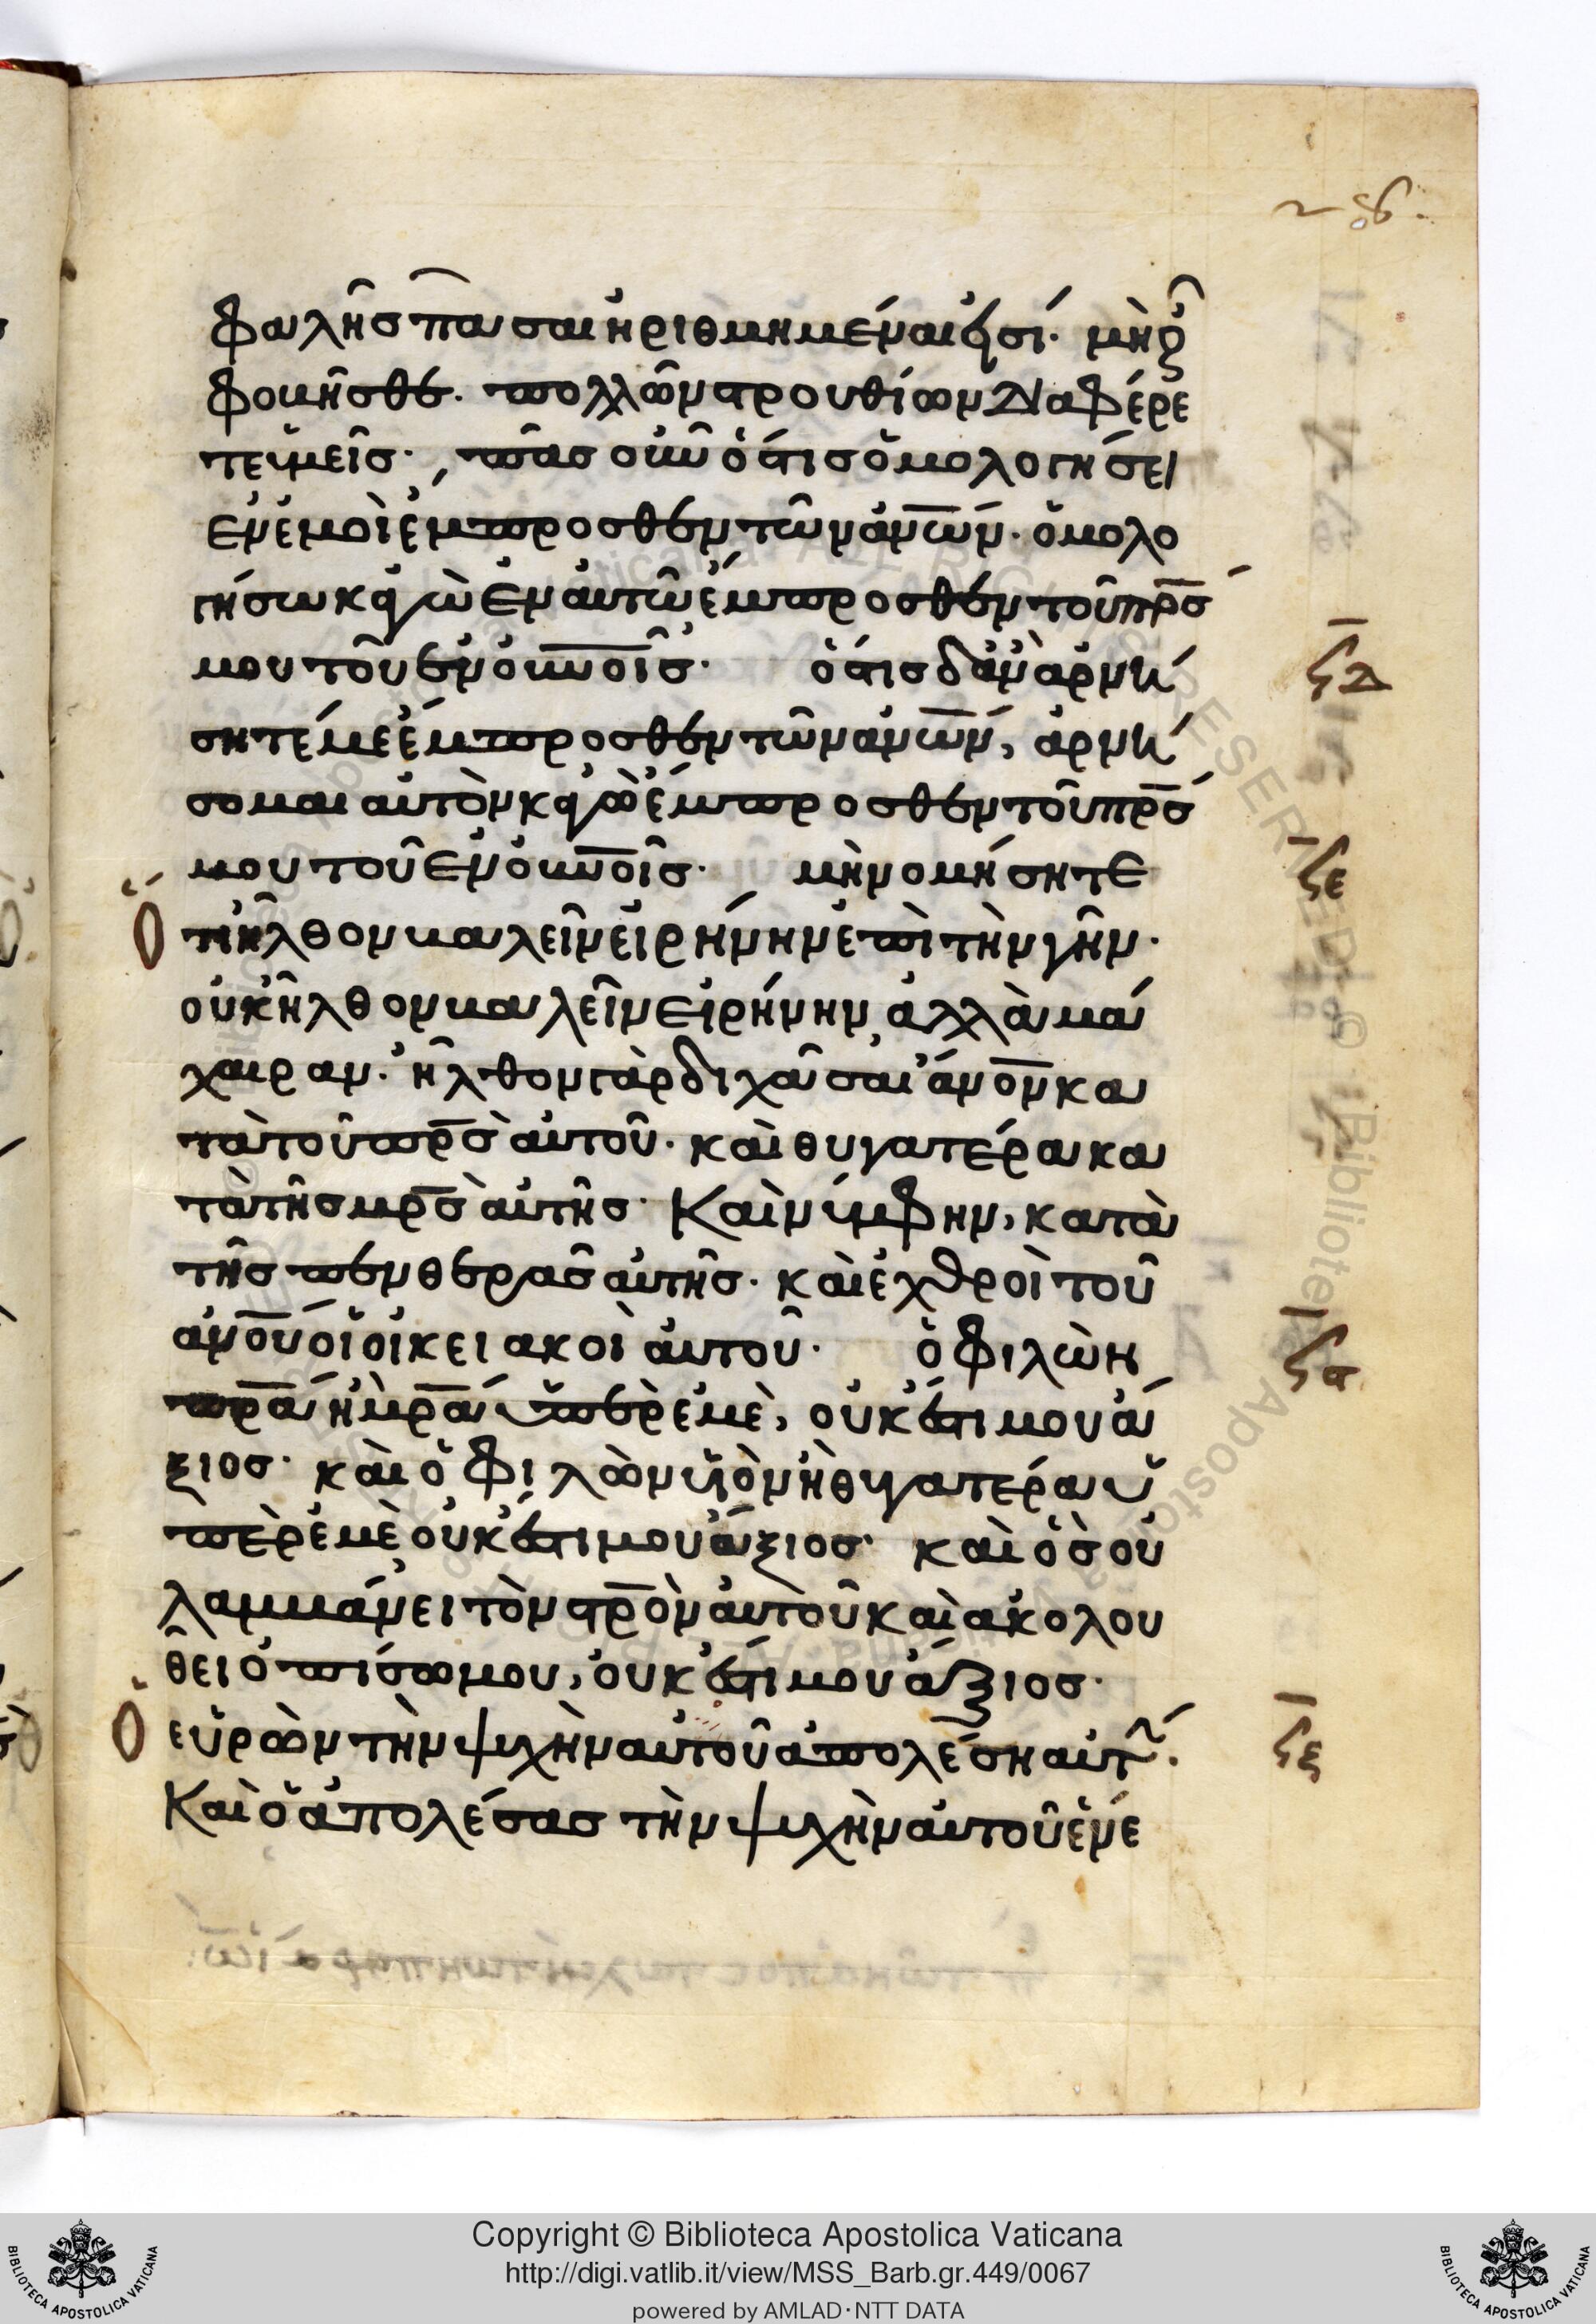 φαλῆσ πᾶσαι ἠριθμημέναι εἰσί· μὴ οὖν
φοβῆσθε· πολλῶν στρουθίων διαφέρε
τε ὑμεῖσ· πᾶσ οὖν ὅστισ ὁμολογήσει
ἐν ἐμοὶ ἔμπροσθεν τῶν ἀν̅ω̅ν· ὁμολο
γήσω κἀγὼ ἐν αὐτῶ ἔμπροσθεν τοῦ π̅ρ̅σ
μου τοῦ ἐν ὀυ̅ν̅οῖσ· ὅστισ δ' ἂν ἀρνή
σηταί με ἔμπροσθεν τῶν ἀν̅ω̅ν, ἀρνή
σομαι αὐτὸν κἀγὼ ἔμπροσθεν τοῦ π̅ρ̅σ
μου τοῦ ἐν ὀυ̅ν̅οῖσ· μὴ νομήσητε
ὅτι ἦλθον βαλεῖν εἰρήνην ἐπὶ τὴν γῆν·
οὐκ ἦλθον βαλεῖν εἰρήνην ἀλλὰ μά
χαιραν· ἦλθον γὰρ διχᾶσαι ἄν̅ο̅ν κα
τὰ τοῦ π̅ρ̅σ αὐτοῦ· καὶ θυγατέρα κα
τὰ τῆσ μ̅ρ̅σ αὐτῆσ· Καὶ νύμφην, κατὰ
τῆσ πενθερᾶσ αὐτῆσ· καὶ ἐχθροὶ τοῦ
ἀν̅ο̅υ οἱ οἰκειακοὶ αὐτοῦ· ὁ φιλὼη
π̅ρ̅α ἢ μ̅ρ̅α ὑπὲρ ἐμὲ, οὐκ ἔστι μου ἄ
ξιοσ· καὶ ὁ φιλῶν υἱὸν ἢ θυγατέρα ὑ
πὲρ ἐμὲ οὐκ ἔστι μου ἄξιοσ· καὶ ὃσ οὐ
λαμβάνει τὸν στ̅ρ̅ὸν αὐτοῦ καὶ ἀκολου
θεῖ ὀπίσω μου, οὐκ ἔστι μου ἄξιοσ·
ὁ εὑρὼν τὴν ψυχὴν αὐτοῦ ἀπολέση αὐτ·
Καὶ ὁ ἀπολέσασ τὴν ψυχὴν αὐτοῦ ἕνε
ϛδ
ϛε
ϛα
ϛξ
Copyright © Biblioteca Apostolica Vaticana
http://digi.vatlib.it/view/MSS_Barb.gr.449/0067
powered by AMLAD·NTT DATA
BIBLIOTECA APOSTOLICA VATICANA
BIBLIOTECA APOSTOLICA VATICANA